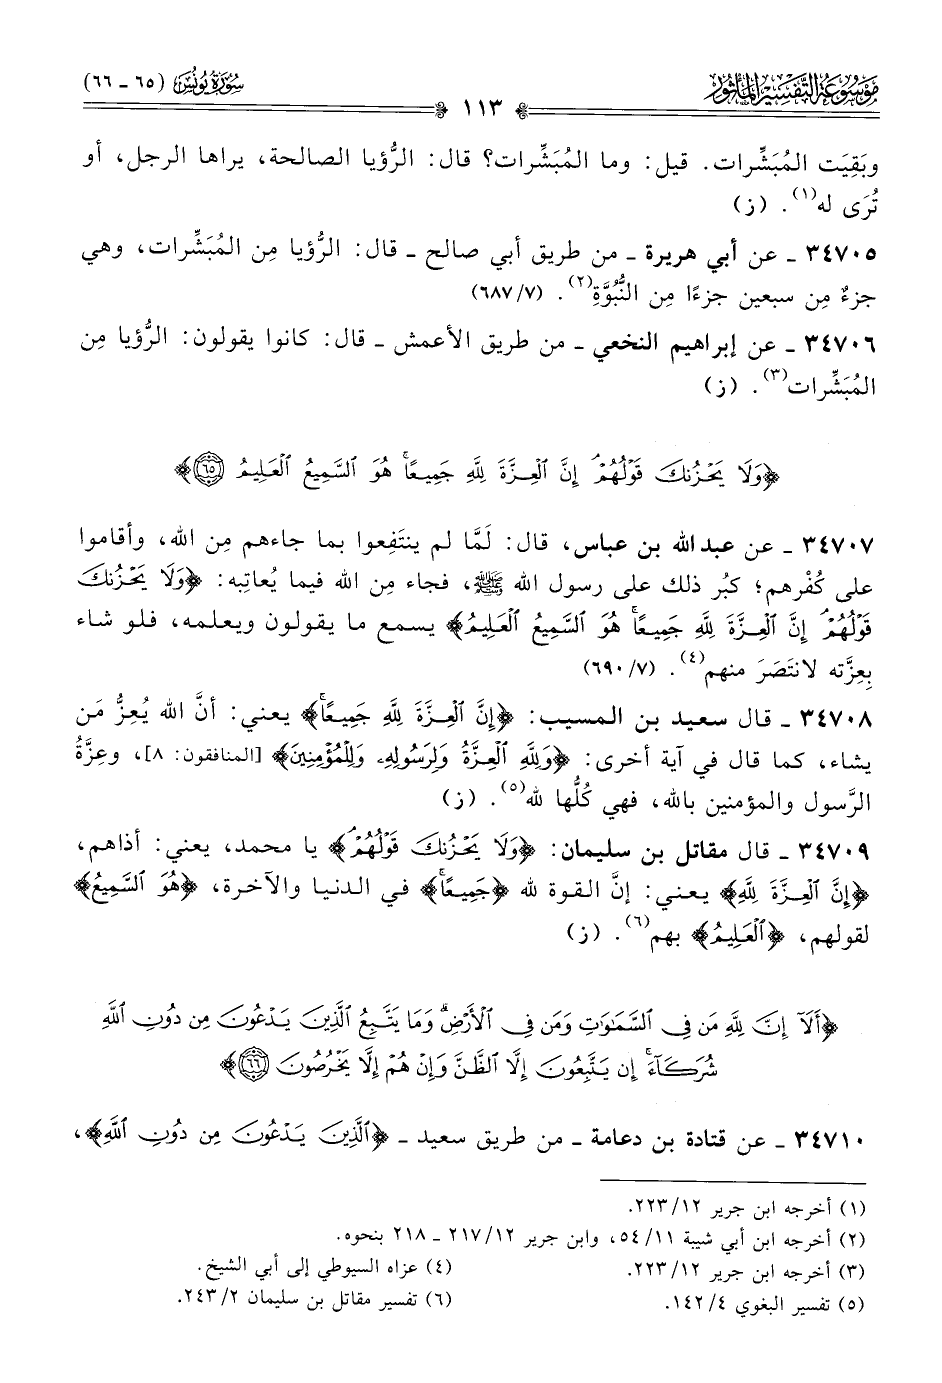 موسوعة التفسير المأثور
سورة يونس (٦٥ ـ ٦٦)
١١٣
وبَقِيَت المُبَشِّرات. قيل: وما المُبَشِّرات؟ قال: الرُّؤيا الصالحة، يراها الرجل، أو
تُرَى له(١). (ز)
٣٤٧٠٥ ـ عن أبي هريرة ـ من طريق أبي صالح ـ قال: الرُّؤيا مِن المُبَشِّرات، وهي
جزءٌ مِن سبعين جزءًا مِن النُّبُوَّةِ(٢). (٦٨٧/٧)
٣٤٧٠٦ ـ عن إبراهيم النخعي ـ من طريق الأعمش ـ قال: كانوا يقولون: الرُّؤيا مِن
المُبَشِّرات(٣). (ز)
﴿وَلَا يَحْزُنكَ قَوْلُهُمْ ۘ إِنَّ ٱلْعِزَّةَ لِلَّهِ جَمِيعًا ۚ هُوَ ٱلسَّمِيعُ ٱلْعَلِيمُ ٦٥﴾
٣٤٧٠٧ ـ عن عبدالله بن عباس، قال: لَمَّا لم ينتَفِعوا بما جاءهم مِن الله، وأقاموا
على كُفْرهم؛ كبُر ذلك على رسول الله ﷺ، فجاء مِن الله فيما يُعاتِبه: ﴿وَلَا يَحْزُنكَ
قَوْلُهُمْ ۘ إِنَّ ٱلْعِزَّةَ لِلَّهِ جَمِيعًا ۚ هُوَ ٱلسَّمِيعُ ٱلْعَلِيمُ﴾ يسمع ما يقولون ويعلمه، فلو شاء
بِعِزَّته لانتَصَرَ منهم(٤). (٦٩٠/٧)
٣٤٧٠٨ ـ قال سعيد بن المسيب: ﴿إِنَّ ٱلْعِزَّةَ لِلَّهِ جَمِيعًا ۚ﴾ يعني: أنَّ الله يُعِزُّ مَن
يشاء، كما قال في آية أخرى: ﴿وَلِلَّهِ ٱلْعِزَّةُ وَلِرَسُولِهِۦ وَلِلْمُؤْمِنِينَ﴾ [المنافقون: ٨]، وعِزَّةُ
الرَّسول والمؤمنين بالله، فهي كُلُّها لله(٥). (ز)
٣٤٧٠٩ ـ قال مقاتل بن سليمان: ﴿وَلَا يَحْزُنكَ قَوْلُهُمْ ۘ﴾ يا محمد، يعني: أذاهم،
﴿إِنَّ ٱلْعِزَّةَ لِلَّهِ﴾ يعني: إنَّ القوة لله ﴿جَمِيعًا ۚ﴾ في الدنيا والآخرة، ﴿هُوَ ٱلسَّمِيعُ﴾
لقولهم، ﴿ٱلْعَلِيمُ﴾ بهم(٦). (ز)
﴿أَلَآ إِنَّ لِلَّهِ مَن فِى ٱلسَّمَٰوَٰتِ وَمَن فِى ٱلْأَرْضِ ۗ وَمَا يَتَّبِعُ ٱلَّذِينَ يَدْعُونَ مِن دُونِ ٱللَّهِ
شُرَكَآءَ ۚ إِن يَتَّبِعُونَ إِلَّا ٱلظَّنَّ وَإِنْ هُمْ إِلَّا يَخْرُصُونَ ٦٦﴾
٣٤٧١٠ ـ عن قتادة بن دعامة ـ من طريق سعيد ـ ﴿ٱلَّذِينَ يَدْعُونَ مِن دُونِ ٱللَّهِ﴾،
(١) أخرجه ابن جرير ٢٢٣/١٢.
(٢) أخرجه ابن أبي شيبة ٥٤/١١، وابن جرير ٢١٧/١٢ ـ ٢١٨ بنحوه.
(٣) أخرجه ابن جرير ٢٢٣/١٢.
(٤) عزاه السيوطي إلى أبي الشيخ.
(٥) تفسير البغوي ١٤٢/٤.
(٦) تفسير مقاتل بن سليمان ٢٤٣/٢.